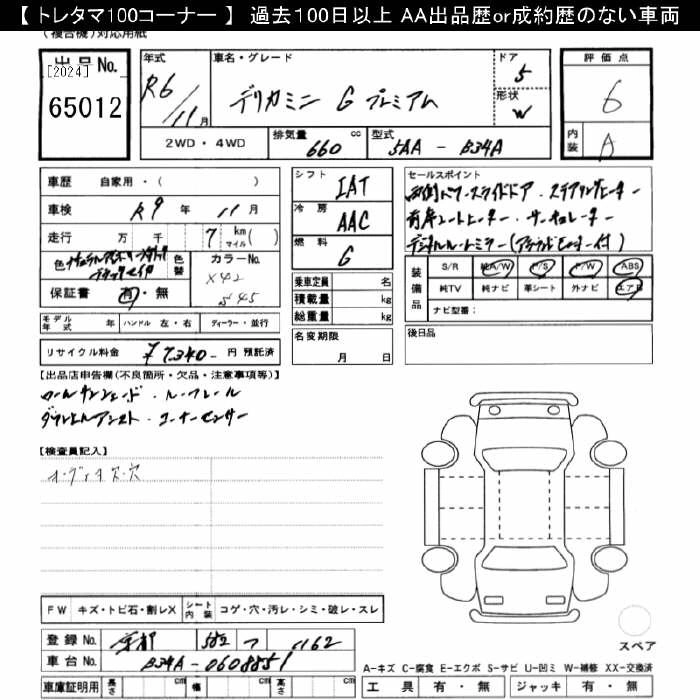 【 トレタマ100コーナー 】 過去100日以上 AA出品歴or成約歴のない車両
(複合機)対応用紙
出品No.
[2024]
65012
年式
R6/11月
車名・グレード
デリカミニ G プレミアム
ドア
5
形状
W
評価点
6
内装
A
2WD・4WD
排気量 660 cc
型式 5AA - B34A
車歴 自家用・( )
車検 R9 年 11 月
走行 万 千 7 km マイル ( )
色
色替
カラーNo.
X42
保証書 有・無
モデル年式 年
ハンドル 左・右
ディーラー・並行
リサイクル料金 ¥7,340- 円 預託済
シフト
IAT
冷房
AAC
燃料
G
乗車定員 名
積載量 kg
総重量 kg
名変期限
月 日
セールスポイント
両側パワースライドドア・ステアリングヒーター
前席シートヒーター・サーキュレーター
デジタルルームミラー(
装備品
S/R 純A/W P/S P/W ABS
純TV 純ナビ 革シート 外ナビ エアB
ナビ型番:
後日品
【出品店申告欄(不良箇所・欠品・注意事項等)】
ロールサンシェード・ルーフレール
ダウンヒルアシスト・コーナーセンサー
【検査員記入】
オーディオ欠・穴
FW キズ・トビ石・割レX
シート内装 コゲ・穴・汚レ・シミ・破レ・スレ
登録No. 京都 582 つ 1162
車台No. B34A-0608851
車庫証明用 長さ cm 幅 cm 高さ cm
スペア
A-キズ C-腐食 E-エクボ S-サビ U-凹ミ W-補修 XX-交換済
工具 有・無 ジャッキ 有・無